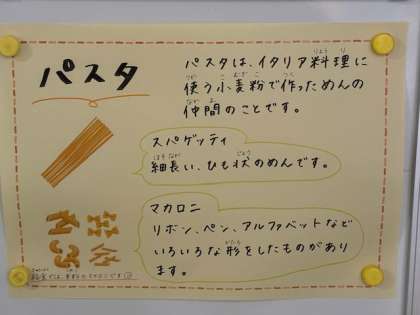 パスタ
パスタは、イタリア料理に
使う小麦粉で作っためんの
仲間のことです。
スパゲッティ
細長い、ひも状のめんです。
マカロニ
リボン、ペン、アルファベットなど
いろいろな形をしたものがあり
ます。